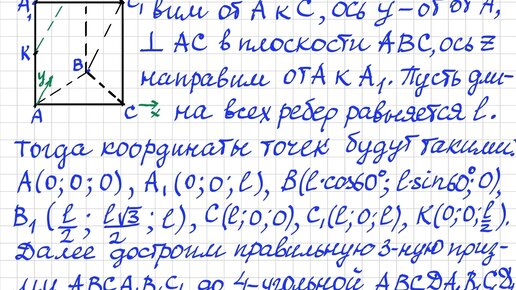 A₁ C₁ вим от A к C, ось y – от от A,
K ⊥ AC в плоскости ABC, ось z
y B направим от A к A₁. Пусть дли-
A C x на всех ребер равняется l.
Тогда координаты точек будут такими:
A(0; 0; 0), A₁(0; 0; l), B(l·cos60°; l sin60°; 0),
B₁(l/2; l√3/2; l), C(l; 0; 0), C₁(l; 0; l), K(0; 0; l/2).
Далее достроим правильную 3-ную приз-
му ABCA₁B₁C₁ до 4-угольной ABCDA₁B₁C₁D₁